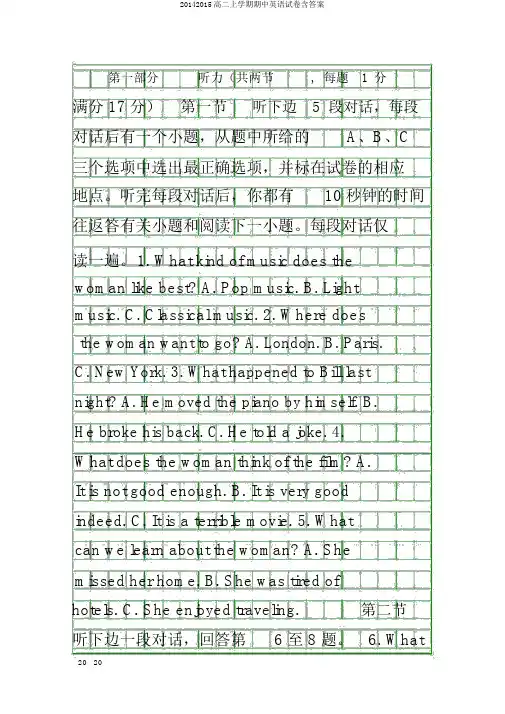 20142015高二上学期期中英语试卷含答案
第一部分 听力（共两节 ，每题 1 分
满分 17 分） 第一节 听下边 5 段对话，每段
对话后有一个小题，从题中所给的 A、B、C
三个选项中选出最正确选项，并标在试卷的相应
地点。听完每段对话后，你都有 10 秒钟的时间
往返答有关小题和阅读下一小题。每段对话仅
读一遍。1. What kind of music does the
woman like best? A. Pop music. B. Light
music. C. Classical music. 2. Where does
the woman want to go? A. London. B. Paris.
C. New York. 3. What happened to Bill last
night? A. He moved the piano by himself. B.
He broke his back. C. He told a joke. 4.
What does the woman think of the film? A.
It is not good enough. B. It is very good
indeed. C. It is a terrible movie. 5. What
can we learn about the woman? A. She
missed her home. B. She was tired of
hotels. C. She enjoyed traveling. 第二节
听下边一段对话，回答第 6 至 8 题。 6. What
20 20